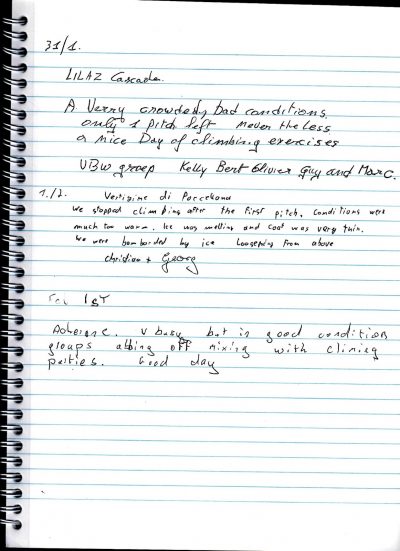 31/1.
LILAZ Cascade.
A Verry crowdedy bad conditions.
only 1 pitch left never the less
a nice Day of climbing exercises
VBW groep Kelly Bert Olivier Guy and Marc.
1./2. Vertigine di Porcellana
We stopped climbing after the first pitch. Conditions were
much too warm. Ice was melting and coat was very thin.
We were bomborded by ice from above
Christian + Georg
1ST
V busy but in good condition
groups abbing off mixing with climing
parties. Good day